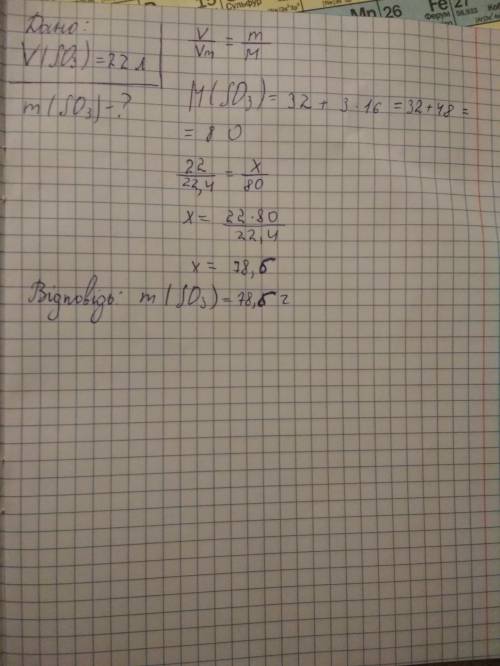 Сульфур
Mn 26
Fe 27
Ферум
Дано:
V(SO₃) = 22 л
m(SO₃) - ?
V/Vm = m/M
M(SO₃) = 32 + 3·16 = 32+48 =
= 80
22/22,4 = x/80
x = 22·80/22,4
x = 78,6
Відповідь: m(SO₃) = 78,6 г